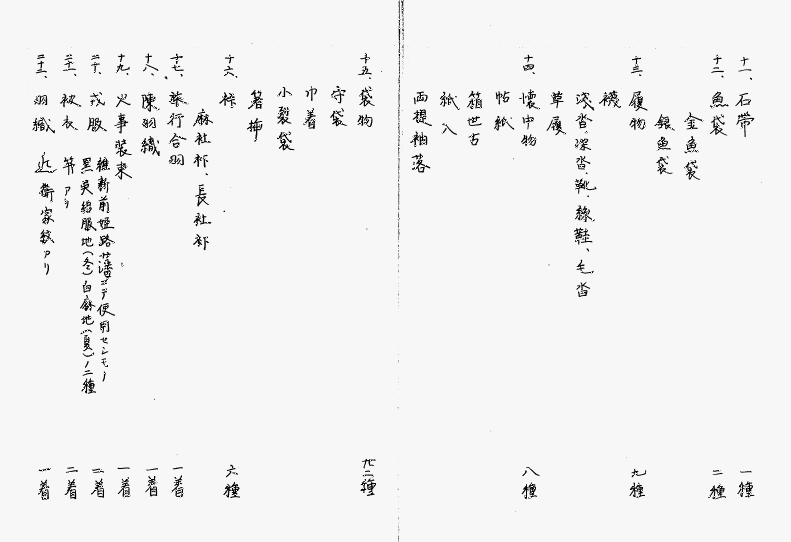 十一、石帯 一種
十二、魚袋 二種
金魚袋
銀魚袋
十三、履物 九種
襪
浅沓、深沓、靴、線鞋、毛沓
草履
十四、懐中物 八種
帖紙
箱世古
紙入
両提袖落
十五、袋物 九二種
守袋
巾着
小裂袋
箸挿
十六、裃 六種
麻社裃、長社裃
十七、旅行合羽 一着
十八、陳羽織 一着
十九、火事装束 一着
二十、戎服 二着
維新前姫路藩ニテ使用セシモノ
黒呉絽服地(冬)白麻地(夏)ノ二種
二十一、被衣 二着
二十二、羽織 近衛家紋アリ 一着